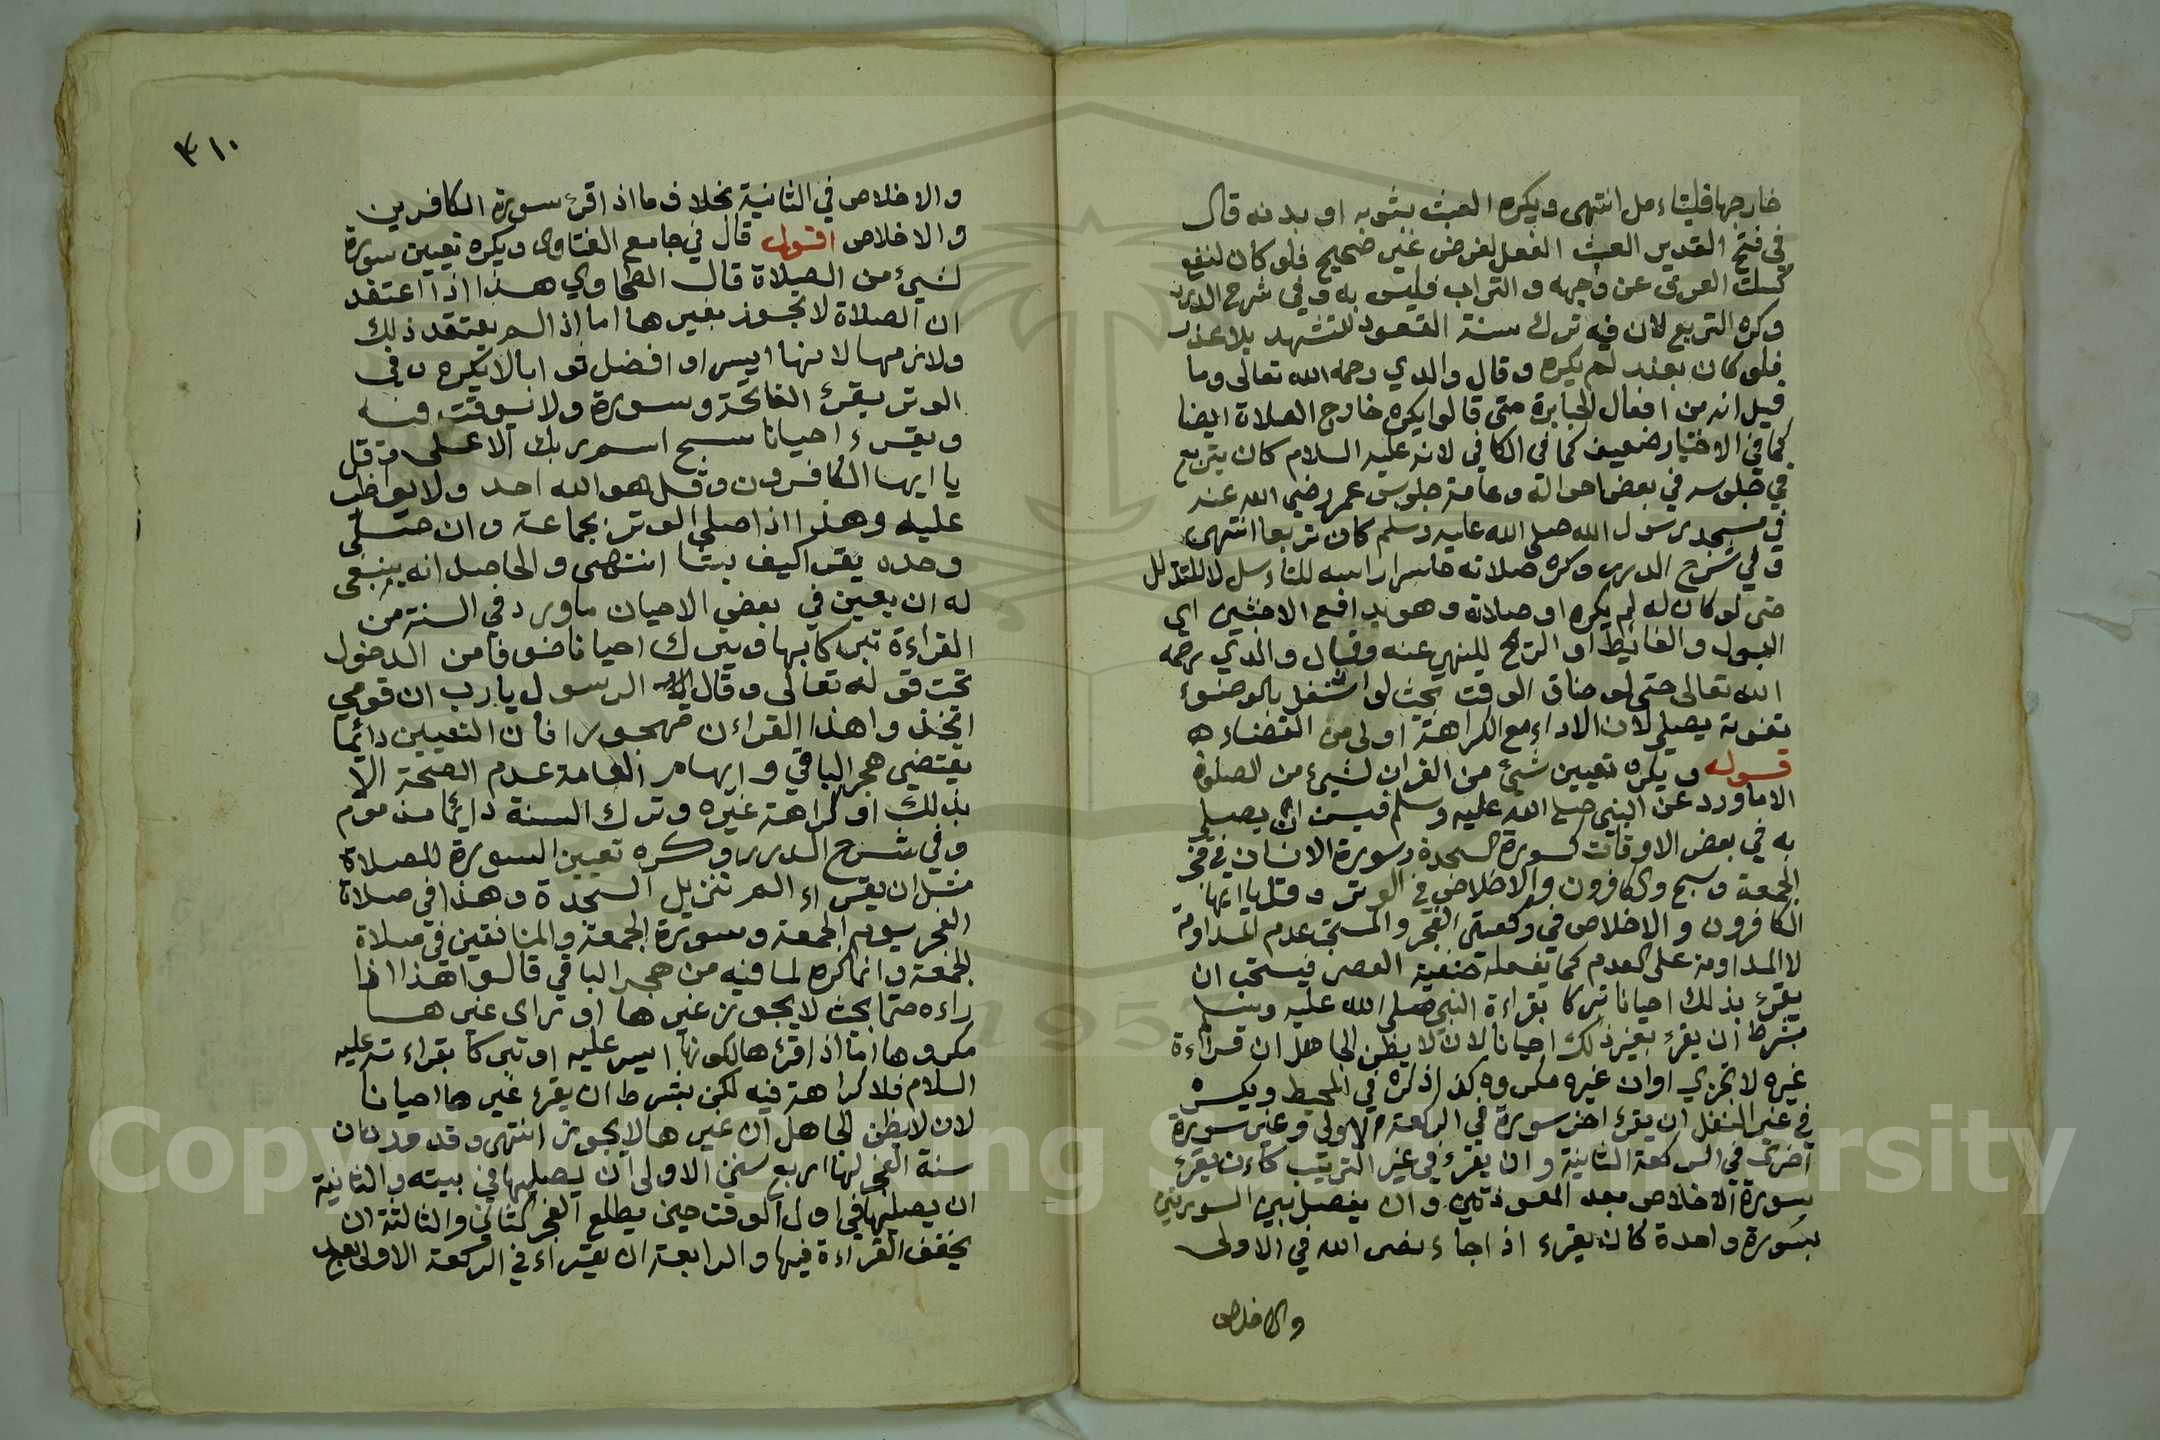 خارجها فليتاءمل انتهى ويكره العبث بثوبه او بدنه قال
في فتح القدير العبث الفعل لغرض غير صحيح فلو كان لنفع
كسلت العرق عن وجهه والتراب فليس به وفي شرح الدرر
وكره التربع لان فيه ترك سنة القعود للتشهد بلا عذر
فلو كان بعذر لم يكره وقال والدي رحمه الله تعالى وما
قيل انه من افعال الجبابرة حتى قالوا يكره خارج الصلاة ايضا
كما في الاختيار ضعيف كما في الكافي لانه عليه السلام كان يتربع
في جلوسه في بعض احواله وعامة جلوس عمر رضي الله عنه
في مسجد رسول الله صلى الله عليه وسلم كان تربعا انتهى
وفي شرح الدرر وكره صلاته حاسرا راسه للتكاسل لا للتذلل
حتى لو كان له لم يكره او صلاته وهو يدافع الاخبثين اي
البول والغائط او الريح للنهي عنه وقال والدي رحمه
الله تعالى حتى لو ضاق الوقت بحيث لو اشتغل بالوضوء
تفوته يصلي لان الاداء مع الكراهة اولى من القضاء ه
قوله ويكره تعيين شيئ من القران لشيئ من الصلوة
الا ما ورد عن النبي صلى الله عليه وسلم فيسن ان يصلي
به في بعض الاوقات كسورة السجدة وسورة الانسان في فجر
الجمعة وسبح والكافرون والاخلاص في الوتر وقل يا ايها
الكافرون والاخلاص في ركعتي الفجر والمستحب عدم المداومة
لا المداومة على العدم كما تفعله حنفية العصر فيستحب ان
يقرئ بذلك احيانا تبركا بقراءة النبي صلى الله عليه وسلم
بشرط ان يقرئ بغير ذلك احيانا لان لا يظن الجاهل ان قراءة
غيره لا تجزي او ان غيره مكروه كذا ذكره في المحيط ويكره
في غير النفل ان يقرئ اخر سورة في الركعة الاولى وغير سورة
اخرى في الركعة الثانية وان يقرئ في غير الترتيب كاءن يقرئ
سورة الاخلاص بعد المعوذتين وان يفصل بين السورتين
بسورة واحدة كان يقرء اذا جاء نصر الله في الاولى
والاخلاص
٣١٠
والاخلاص في الثانية بخلاف ما اذا قرئ سورة الكافرين
والاخلاص اقول قال في جامع الفتاوى ويكره تعيين سورة
لشيئ من الصلاة قال الطحاوي هذا اذا اعتقد
ان الصلاة لا تجوز بغيرها اما اذا لم يعتقد ذلك
ولازمها لانها ايسر او افضل ثوابا لا يكره وفي
الوتر يقرئ الفاتحة وسورة ولا يوقت فيه
ويقرء احيانا سبح اسم ربك الاعلى وقل
يا ايها الكافرون وقل هو الله احد ولا يواظب
عليه وهذا اذا صلى الوتر بجماعة وان صلى
وحده يقرا كيف يشا انتهى والحاصل انه ينبغي
له ان يعين في بعض الاحيان ما ورد في السنة من
القراءة تبركا بها ويترك احيانا خوفا من الدخول
تحت قوله تعالى وقال الرسول يا رب ان قومي
اتخذوا هذا القراءن مهجورا فان التعيين دائما
يقتضي هجر الباقي وايهام العامة عدم الصحة الا
بذلك او كراهة غيره وترك السنة دايما مذموم
وفي شرح الدرر وكره تعيين السورة للصلاة
مثل ان يقراء الم تنزيل السجدة وهذا في صلاة
الفجر يوم الجمعة وسورة الجمعة والمنافقين في صلاة
الجمعة وانما كره لما فيه من هجر الباقي قالوا هذا اذا
راءه حتما بحيث لا يجوز غيرها او راى غيرها
مكروها اما اذا قرئها لكونها ايسر عليه او تبركا بقراءته عليه
السلام فلا كراهة فيه لكن بشرط ان يقرء غيرها احيانا
لان لا يظن الجاهل ان غيرها لا يجوز انتهى وقد
سنة الفجر لها اربع سنن الاولى ان يصليها في بيته والثانية
ان يصليها في اول الوقت حين يطلع الفجر الثاني والثالثة ان
يخفف القراءة فيها والرابعة ان يقراء في الركعة الاولى
Copyright © King Saud University
1957